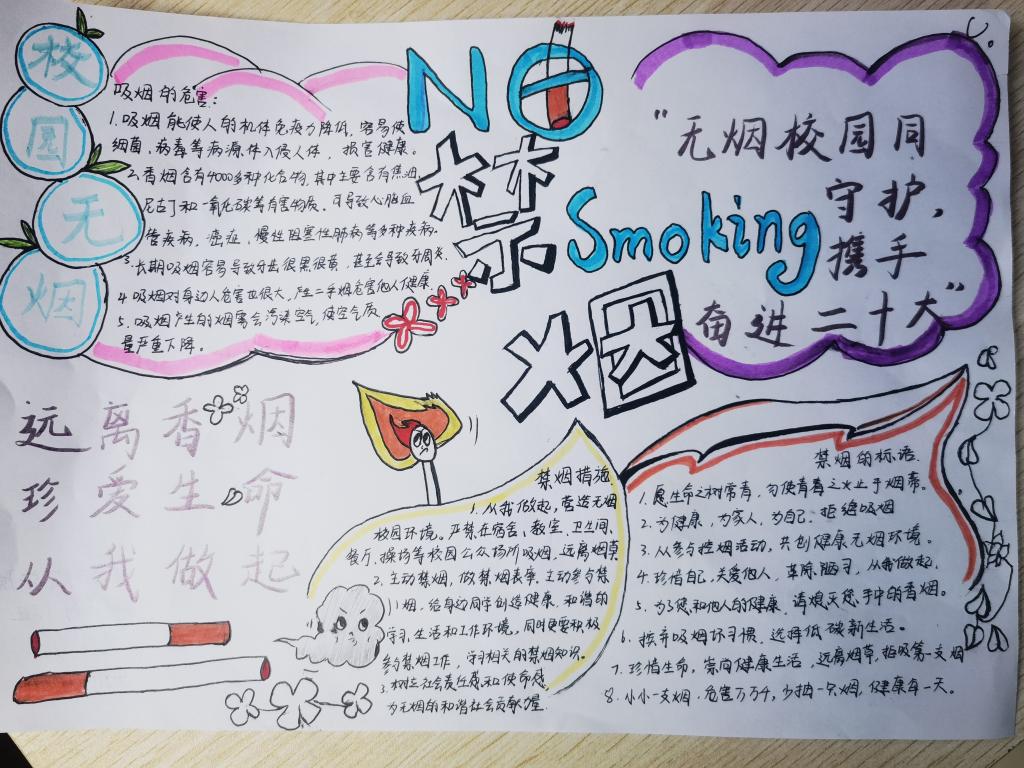 校
园
无
烟
吸烟的危害：
1.吸烟能使人的机体免疫力降低，容易使
细菌、病毒等病源体入侵人体，损害健康。
2.香烟含有4000多种化合物，其中主要含有焦油、
尼古丁和一氧化碳等有害物质，可导致心脑血
管疾病，癌症，慢性阻塞性肺病等多种疾病。
3.长期吸烟容易导致牙齿很黑很黄，甚至会导致牙周炎
4.吸烟对身边人危害也很大，产生二手烟危害他人健康。
5.吸烟产生的烟雾会污染空气，使空气质
量严重下降。
NO
禁
Smoking
烟
“无烟校园同
守护，
携手
奋进二十大”
远离香烟
珍爱生命
从我做起
禁烟措施
1.从我做起，营造无烟
校园环境。严禁在宿舍、教室、卫生间、
餐厅、操场等校园公众场所吸烟，远离烟草
2.主动禁烟，做禁烟表率，主动参与禁
烟，给身边同学创造健康、和谐的
学习、生活和工作环境。同时更要积极
参与禁烟工作，学习相关的禁烟知识。
3.树立社会责任感和使命感，
为无烟的和谐社会贡献力量
禁烟的标语.
1.愿生命之树常青，勿使青春之火止于烟蒂。
2.为健康，为家人，为自己，拒绝吸烟
3.从参与控烟活动，共创健康无烟环境。
4.珍惜自己，关爱他人，革除陋习，从我做起。
5.为了您和他人的健康，请熄灭您手中的香烟。
6.摈弃吸烟坏习惯，选择低碳新生活。
7.珍惜生命，崇尚健康生活，远离烟草，拒吸第一支烟
8.小小一支烟，危害万万千，少抽一只烟，健康每一天。